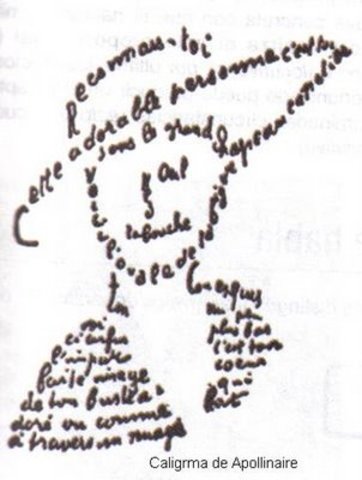 Reconnais-toi
Cette adorable personne c'est toi
sous le grand chapeau canotier
Œil
la bouche
Voici l'ovale de ta figure
ton
Cou exquis
ci enfin
l'impar
faite image
de ton buste a
doré vu comme
à travers un nuage
un peu
plus bas
c'est ton
coeur
qui
bat
Caligrma de Apollinaire